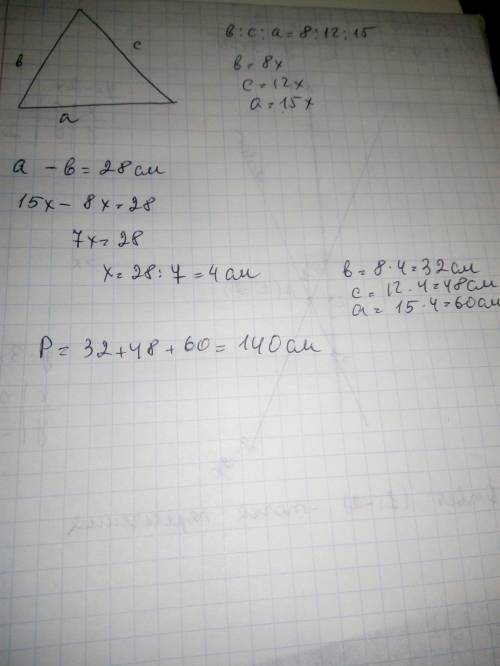 в
с
а
в : с : а = 8 : 12 : 15
в = 8х
с = 12х
а = 15х
а - в = 28 см
15х - 8х = 28
7х = 28
х = 28 : 7 = 4 см
в = 8 · 4 = 32 см
с = 12 · 4 = 48 см
а = 15 · 4 = 60 см
Р = 32 + 48 + 60 = 140 см